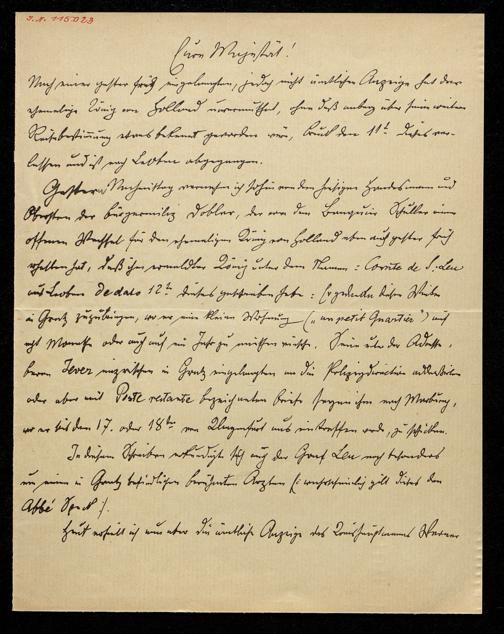 J.N. 115023
Eure Majestät!
Nach einer gestern früh eingelangten, jedoch nicht ämtlichen Anzeige hat der
ehemalige König von Holland unvermuthet, ohne daß anher über seine weitere
Reisebestimmung etwas bekannt geworden wäre, Bruck den 11t. dieses ver-
lassen und ist nach Leoben abgegangen.
Gestern Nachmittag vernehme ich sohin von dem hiesigen Handelsmann und
Obersten der Bürgermiliz Dobler, der von dem Banquier Schuller einen
offenen Wechsel für den ehemaligen König von Holland eben auch gestern früh
erhalten hat, daß ihm ermeldter König unter dem Namen: Comte de S. Leu
aus Leoben de dato 12t. dieses geschrieben habe: (: gedenke diesen Winter
in Gratz zuzubringen, wo er eine kleine Wohnung („un petit Quartier") auf
acht Monathe oder auch auf ein Jahr zu miethen wünsche. Seine unter der Adresse,
Herrn inzwischen in Gratz eingelangten an die Polizeydirection
oder aber mit Poste restante bezeichneten Briefe ihm nach Marburg,
wo er bis den 17. oder 18ten von Klagenfurt aus eintreffen werde, zu schicken.
In diesem Schreiben erkundigte sich auch der Graf Leu noch besonders
um einen in Gratz befindlichen berühmten Arzten (: wahrscheinlich gilt dieses den
Abbé :).
Heut erhielt ich nun aber die ämtliche Anzeige des Kreishauptmanns Werner